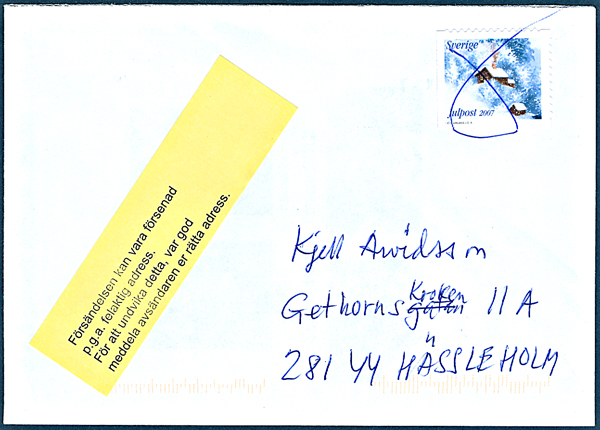 Sverige
Julpost 2007
Försändelsen kan vara försenad
p.g.a. felaktig adress.
För att undvika detta, var god
meddela avsändaren er rätta adress.
Kjell Arvidsson
Gethornskroken 11 A
281 44 HÄSSLEHOLM